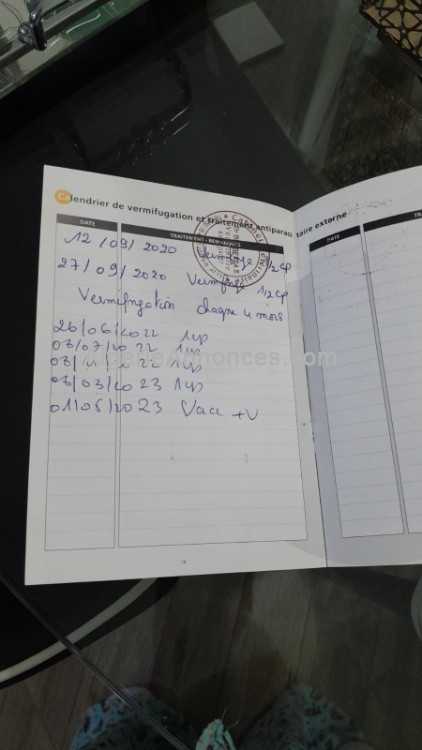 Calendrier de vermifugation et traitement antiparasitaire externe
DATE TRAITEMENT - REMARQUES DATE
12/09/2020 Vermifuge 1/2 cp
27/09/2020 Vermifuge 1/2 cp
Vermifugation chaque 4 mois
26/06/2022 1cp
03/07/2022 1cp
2022 1cp
03/03/2023 1cp
01/06/2023 Vacc +V